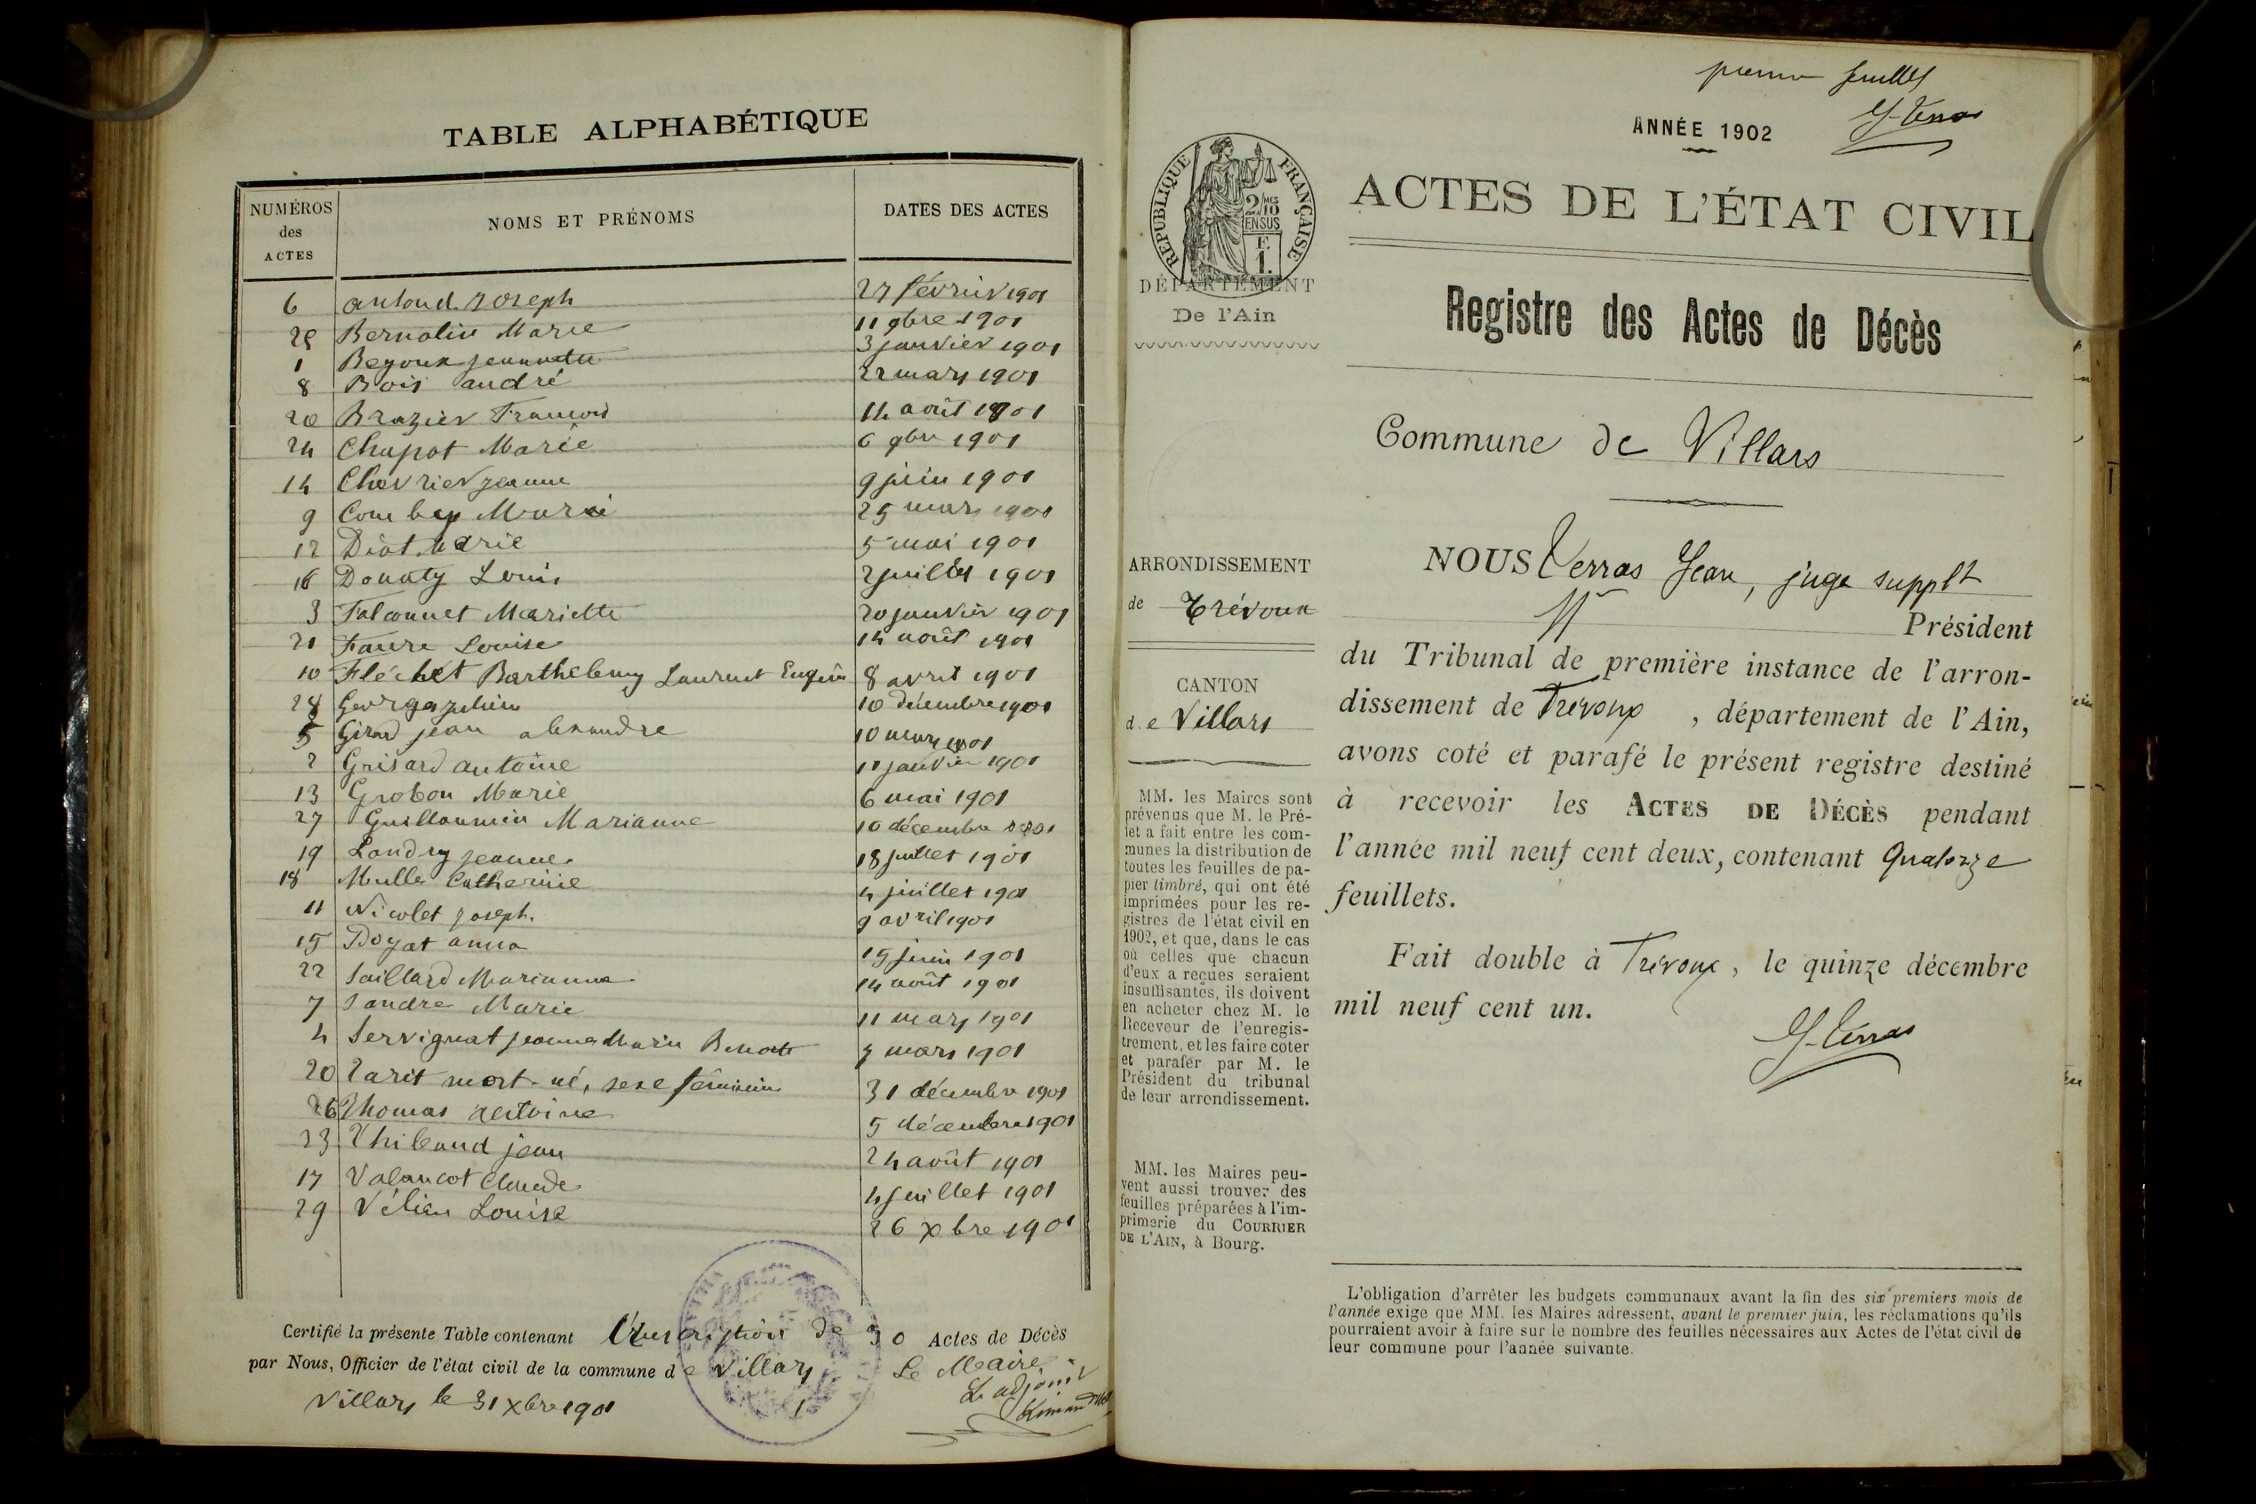 TABLE ALPHABÉTIQUE
NUMÉROS des ACTES
NOMS ET PRÉNOMS
DATES DES ACTES
6 Joseph 27 février 1901
25 Bernolin Marie 11 9bre 1901
1 3 janvier 1901
8 Bois andré 22 mars 1901
20 Brazier 14 août 1901
24 Chapot Marie 6 9bre 1901
14 Chevrier jeanne 9 juin 1901
9 25 mars 1901
12 Diot Marie 5 mai 1901
16 Donaty Louis 2 juillet 1901
3 Falconnet Mariette 20 janvier 1901
21 Faure Louise 14 août 1901
10 Fléchet Barthelemy Laurent Eugène 8 avril 1901
28 10 décembre 1901
5 Girard jean alexandre 10 mars 1901
2 Grisard antoine 11 janvier 1901
13 Grobon Marie 6 mai 1901
27 Guillaumin Marianne 10 décembre 1901
19 Landry jeanne 18 juillet 1901
18 Muller Catherine 4 juillet 1901
11 Nicolet joseph. 9 avril 1901
15 anna 15 juin 1901
22 Saillard Marianne 14 août 1901
7 Sandre Marie 11 mars 1901
4 Servignat jeanne Marie Benoite mars 1901
20 Tarit mort-né, sexe féminin 31 décembre 1901
26 Thomas antoine 5 décembre 1901
23 Thibaud jean 24 août 1901
17 Valancot Claude 4 juillet 1901
29 Vélien Louise 26 xbre 1901
Certifié la présente Table contenant l'inscription de 30 Actes de Décès
par Nous, Officier de l'état civil de la commune de Villars Le Maire
Villars le 31 xbre 1901
L'adjoint
ANNÉE 1902
ACTES DE L'ÉTAT CIVIL
Registre des Actes de Décès
Commune de Villars
RÉPUBLIQUE FRANÇAISE
2/10MES
EN SUS
F.
1.
DÉPARTEMENT
De l'Ain
ARRONDISSEMENT
de Trévoux
CANTON
de Villars
MM. les Maires sont
prévenus que M. le Pré-
fet a fait entre les com-
munes la distribution de
toutes les feuilles de pa-
pier timbré, qui ont été
imprimées pour les re-
gistres de l'état civil en
1902, et que, dans le cas
où celles que chacun
d'eux a reçues seraient
insuffisantes, ils doivent
en acheter chez M. le
Receveur de l'enregis-
trement, et les faire coter
et parafer par M. le
Président du tribunal
de leur arrondissement.
MM. les Maires peu-
vent aussi trouver des
feuilles préparées à l'im-
primerie du COURRIER
DE L'AIN, à Bourg.
NOUS Verras Jean, juge supplt
Président
du Tribunal de première instance de l'arron-
dissement de Trévoux, département de l'Ain,
avons coté et parafé le présent registre destiné
à recevoir les ACTES DE DÉCÈS pendant
l'année mil neuf cent deux, contenant Quatorze
feuillets.
Fait double à Trévoux, le quinze décembre
mil neuf cent un.
L'obligation d'arrêter les budgets communaux avant la fin des six premiers mois de
l'année exige que MM. les Maires adressent, avant le premier juin, les réclamations qu'ils
pourraient avoir à faire sur le nombre des feuilles nécessaires aux Actes de l'état civil de
leur commune pour l'année suivante.